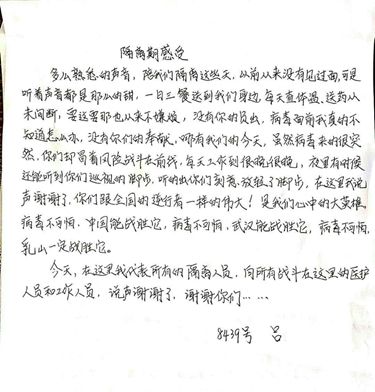 隔离期感受
多么熟悉的声音，陪我们隔离这些天，从前从来没有见过面，可是
听着声音都是那么的甜，一日三餐送到我们身边，每天查体温、送药从
未间断，要这要那也从来不嫌烦，没有你的负出，病毒面前我真的不
知道怎么办，没有你们的奉献，哪有我们的今天，虽然病毒来的很突
然，你们却冒着风险战斗在前线，每天工作到很晚很晚，夜里有时候
还能听到你们巡视的脚步，听的出你们刻意放轻了脚步，在这里我说
声谢谢了，你们跟全国的逆行者一样的伟大！是我们心中的大英雄
病毒不可怕，中国能战胜它，病毒不可怕，武汉能战胜它，病毒不可怕，
乳山一定战胜它。
今天，在这里我代表所有的隔离人员，向所有战斗在这里的医护
人员和工作人员，说声谢谢了，谢谢你们……
8439号 吕